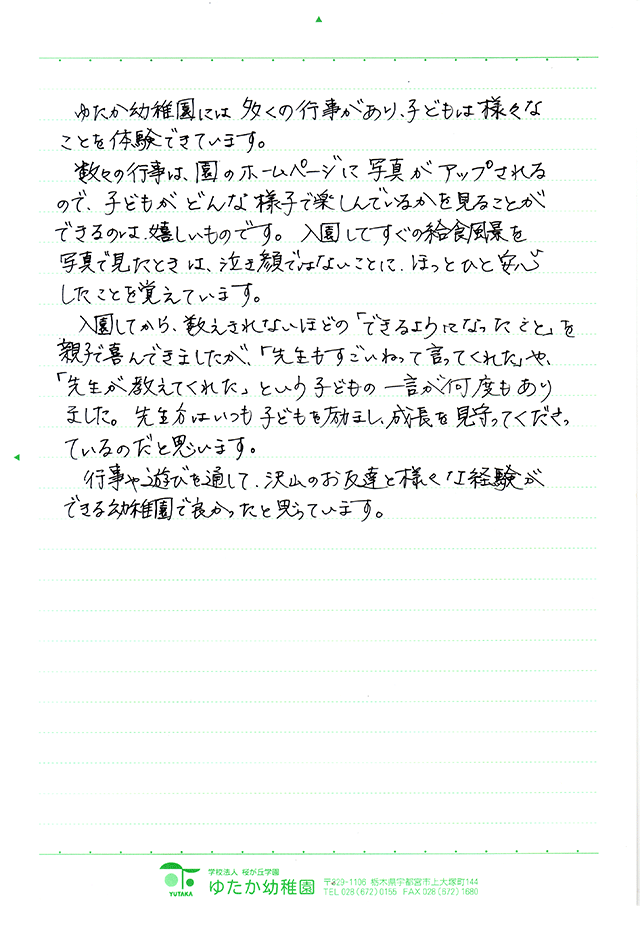 ゆたか幼稚園には多くの行事があり、子どもは様々な
ことを体験できています。
数々の行事は、園のホームページに写真がアップされる
ので、子どもがどんな様子で楽しんでいるかを見ることが
できるのは、嬉しいものです。入園してすぐの給食風景を
写真で見たときは、泣き顔ではないことに、ほっとひと安心
したことを覚えています。
入園してから、数えきれないほどの「できるようになったこと」を
親子で喜んできましたが、「先生もすごいねって言ってくれた」や、
「先生が教えてくれた」という子どもの一言が何度もあり
ました。先生方はいつも子どもを励まし、成長を見守ってくださっ
ているのだと思います。
行事や遊びを通して、沢山のお友達と様々な経験が
できる幼稚園で良かったと思っています。
学校法人 桜が丘学園
ゆたか幼稚園
YUTAKA
〒329-1106 栃木県宇都宮市上大塚町144
TEL 028(672)0155 FAX 028(672)1680